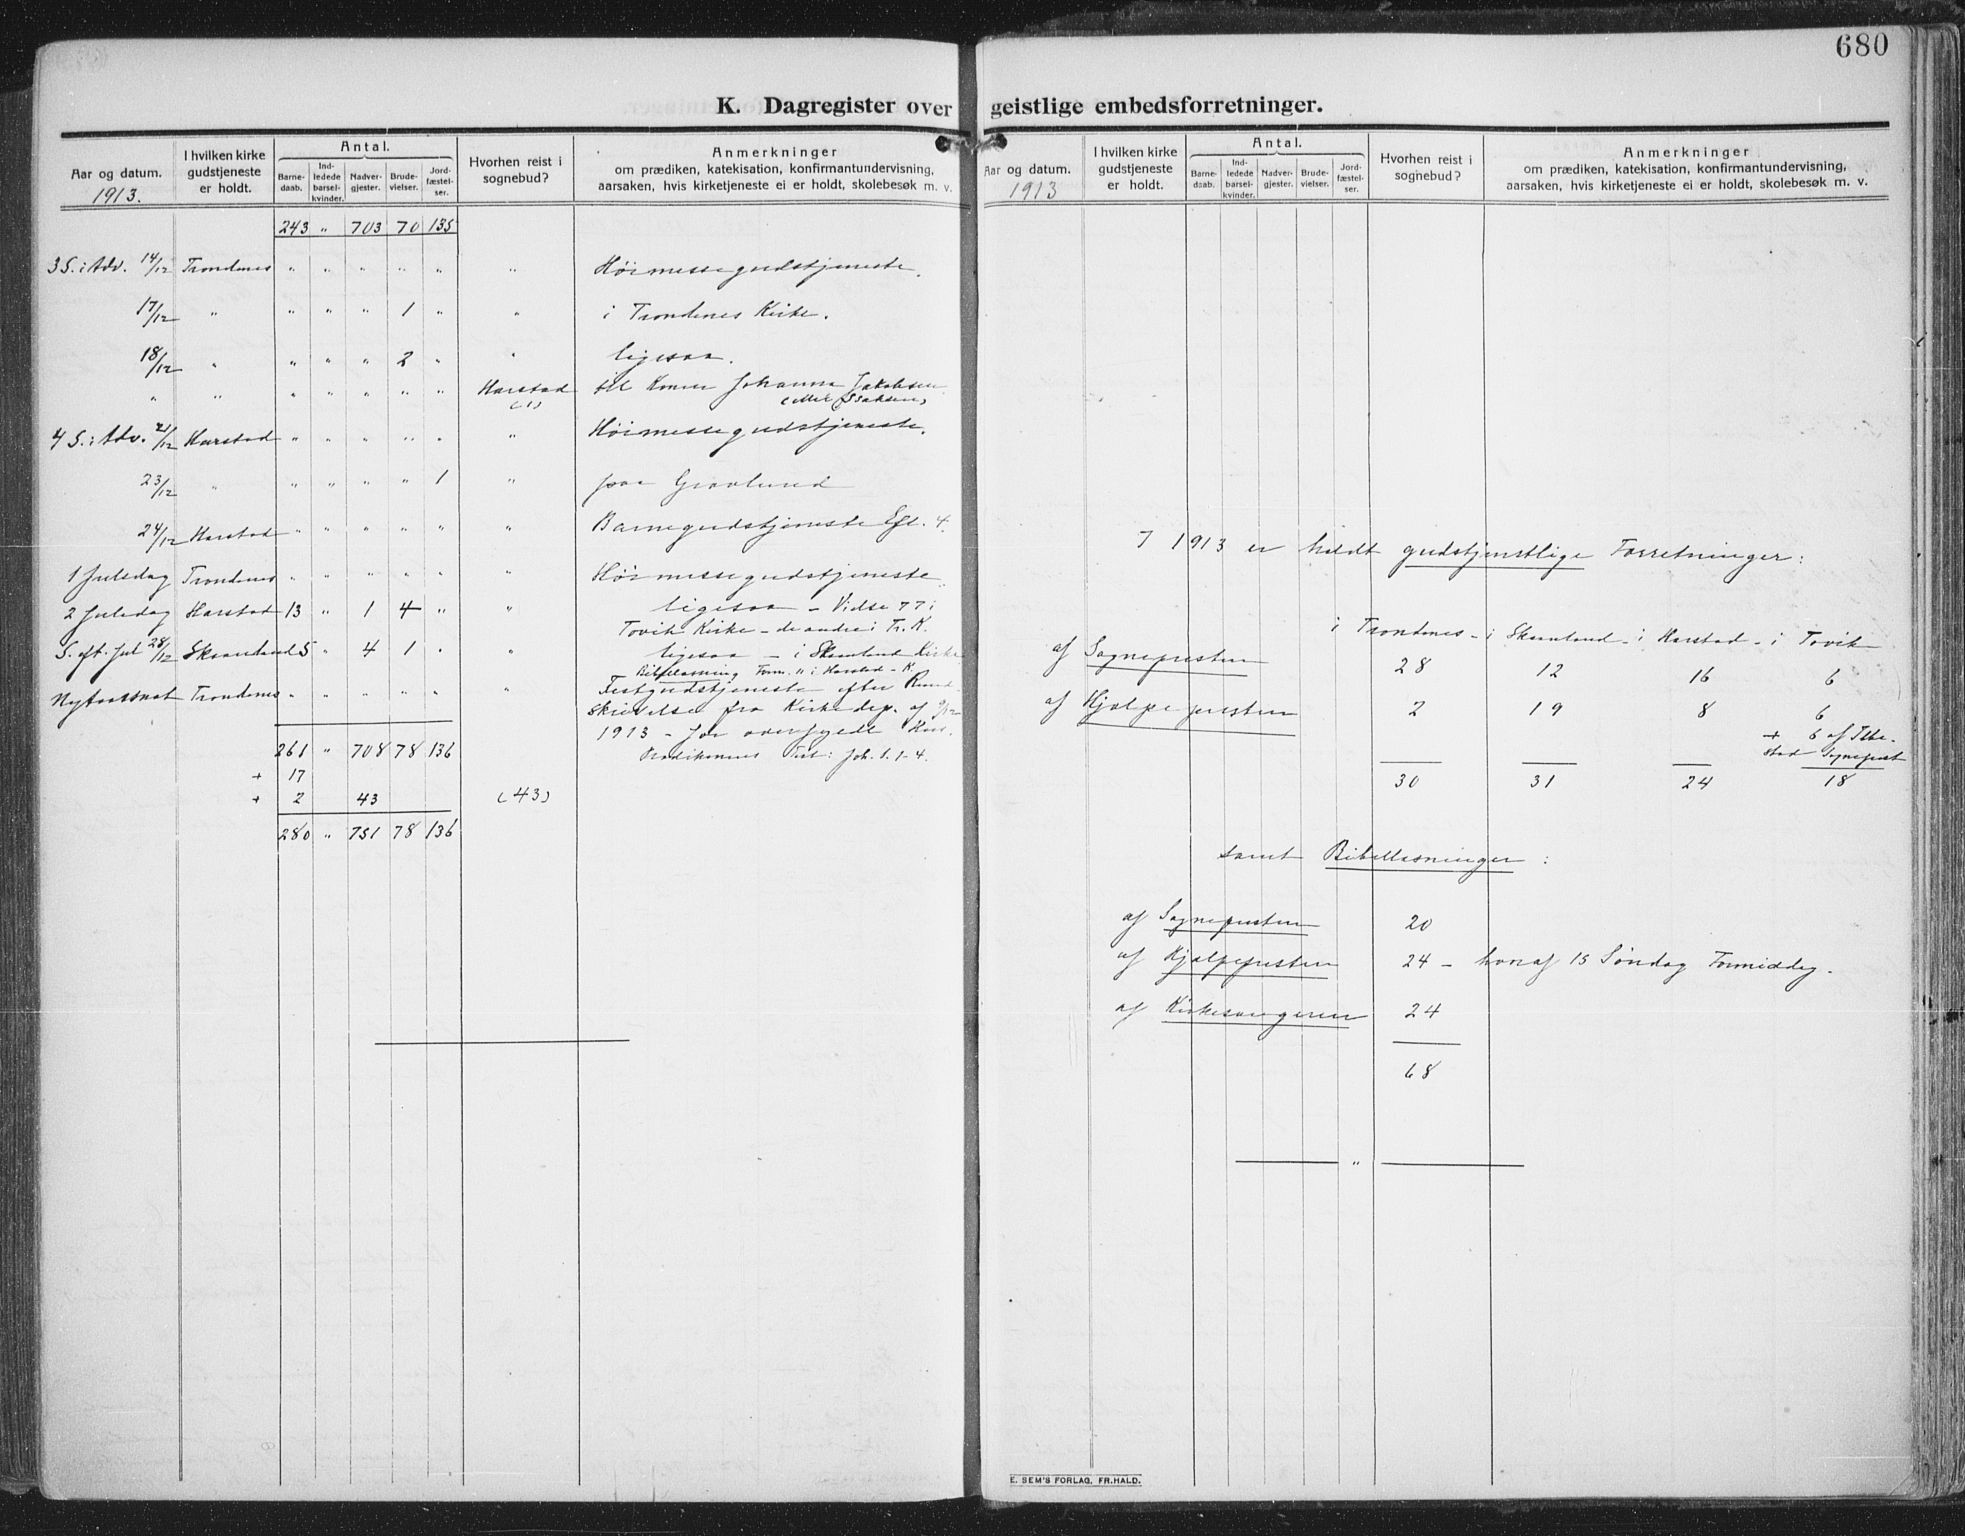 680
K. Dagregister over geistlige embedsforretninger.
Aar og datum.
1913.
I hvilken kirke gudstjeneste er holdt.
Antal.
Barnedaab.
Indledede barselkvinder.
Nadvergjester.
Brudevielser.
Jordfæstelser.
Hvorhen reist i sognebud?
Anmerkninger
om prædiken, katekisation, konfirmantundervisning,
aarsaken, hvis kirketjeneste ei er holdt, skolebesøk m. v.
243 " 703 70 135
3 S. i Adv. 14/12 Trondenes " " " " " " Høimessegudstjeneste.
17/12 " " " " 1 " " i Trondenes Kirke.
18/12 " " " " 2 " " ligesaa.
" " " " " " " Harstad til Konen Johanna Jakobsen
(1) (eller Isaksen)
4 S. i Adv. 21/12 Harstad " " " " " " Høimessegudstjeneste.
23/12 " " " " " 1 " paa Gravlund
24/12 Harstad " " " " " " Barnegudstjeneste Eft. 4.
1 Juledag Trondenes " " " " " " Høimessegudstjeneste
2 Juledag Harstad 13 " 1 4 " " ligesaa – Vielse 77 i
Tovik Kirke – de andre i Tr. K.
S. eft. Jul 28/12 Skaanland 5 " 4 1 " " ligesaa – i Skaanland Kirke
Bibellæsning Form. " i Harstad – K.
Nytaarsnat Trondenes " " " " " " Festgudstjeneste efter Rund-
skrivelse fra Kirkedep. af 9/12
1913 – for overfyldt Hus.
261 " 708 78 136 Prædikenens Text: Joh. 1. 1-4.
+ 17
+ 2 43 (43)
280 " 751 78 136
Aar og datum.
1913
I hvilken kirke gudstjeneste er holdt.
Antal.
Barnedaab.
Indledede barselkvinder.
Nadvergjester.
Brudevielser.
Jordfæstelser.
Hvorhen reist i sognebud?
Anmerkninger
om prædiken, katekisation, konfirmantundervisning,
aarsaken, hvis kirketjeneste ei er holdt, skolebesøk m. v.
I 1913 er holdt gudstjenstlige Forretninger:
i Trondenes – i Skaanland – i Harstad – i Tovik
af Sognepresten 28 12 16 6
af Hjælpepresten 2 19 8 6
+ 6 af Ibe-
stad Sogneprest
30 31 24 18
samt Bibellæsninger:
af Sognepresten 20
af Hjælpepresten 24 – hvoraf 15 Søndag Formiddag.
af Kirkesangeren 24
68
"
E. SEM'S FORLAG, FR.HALD.